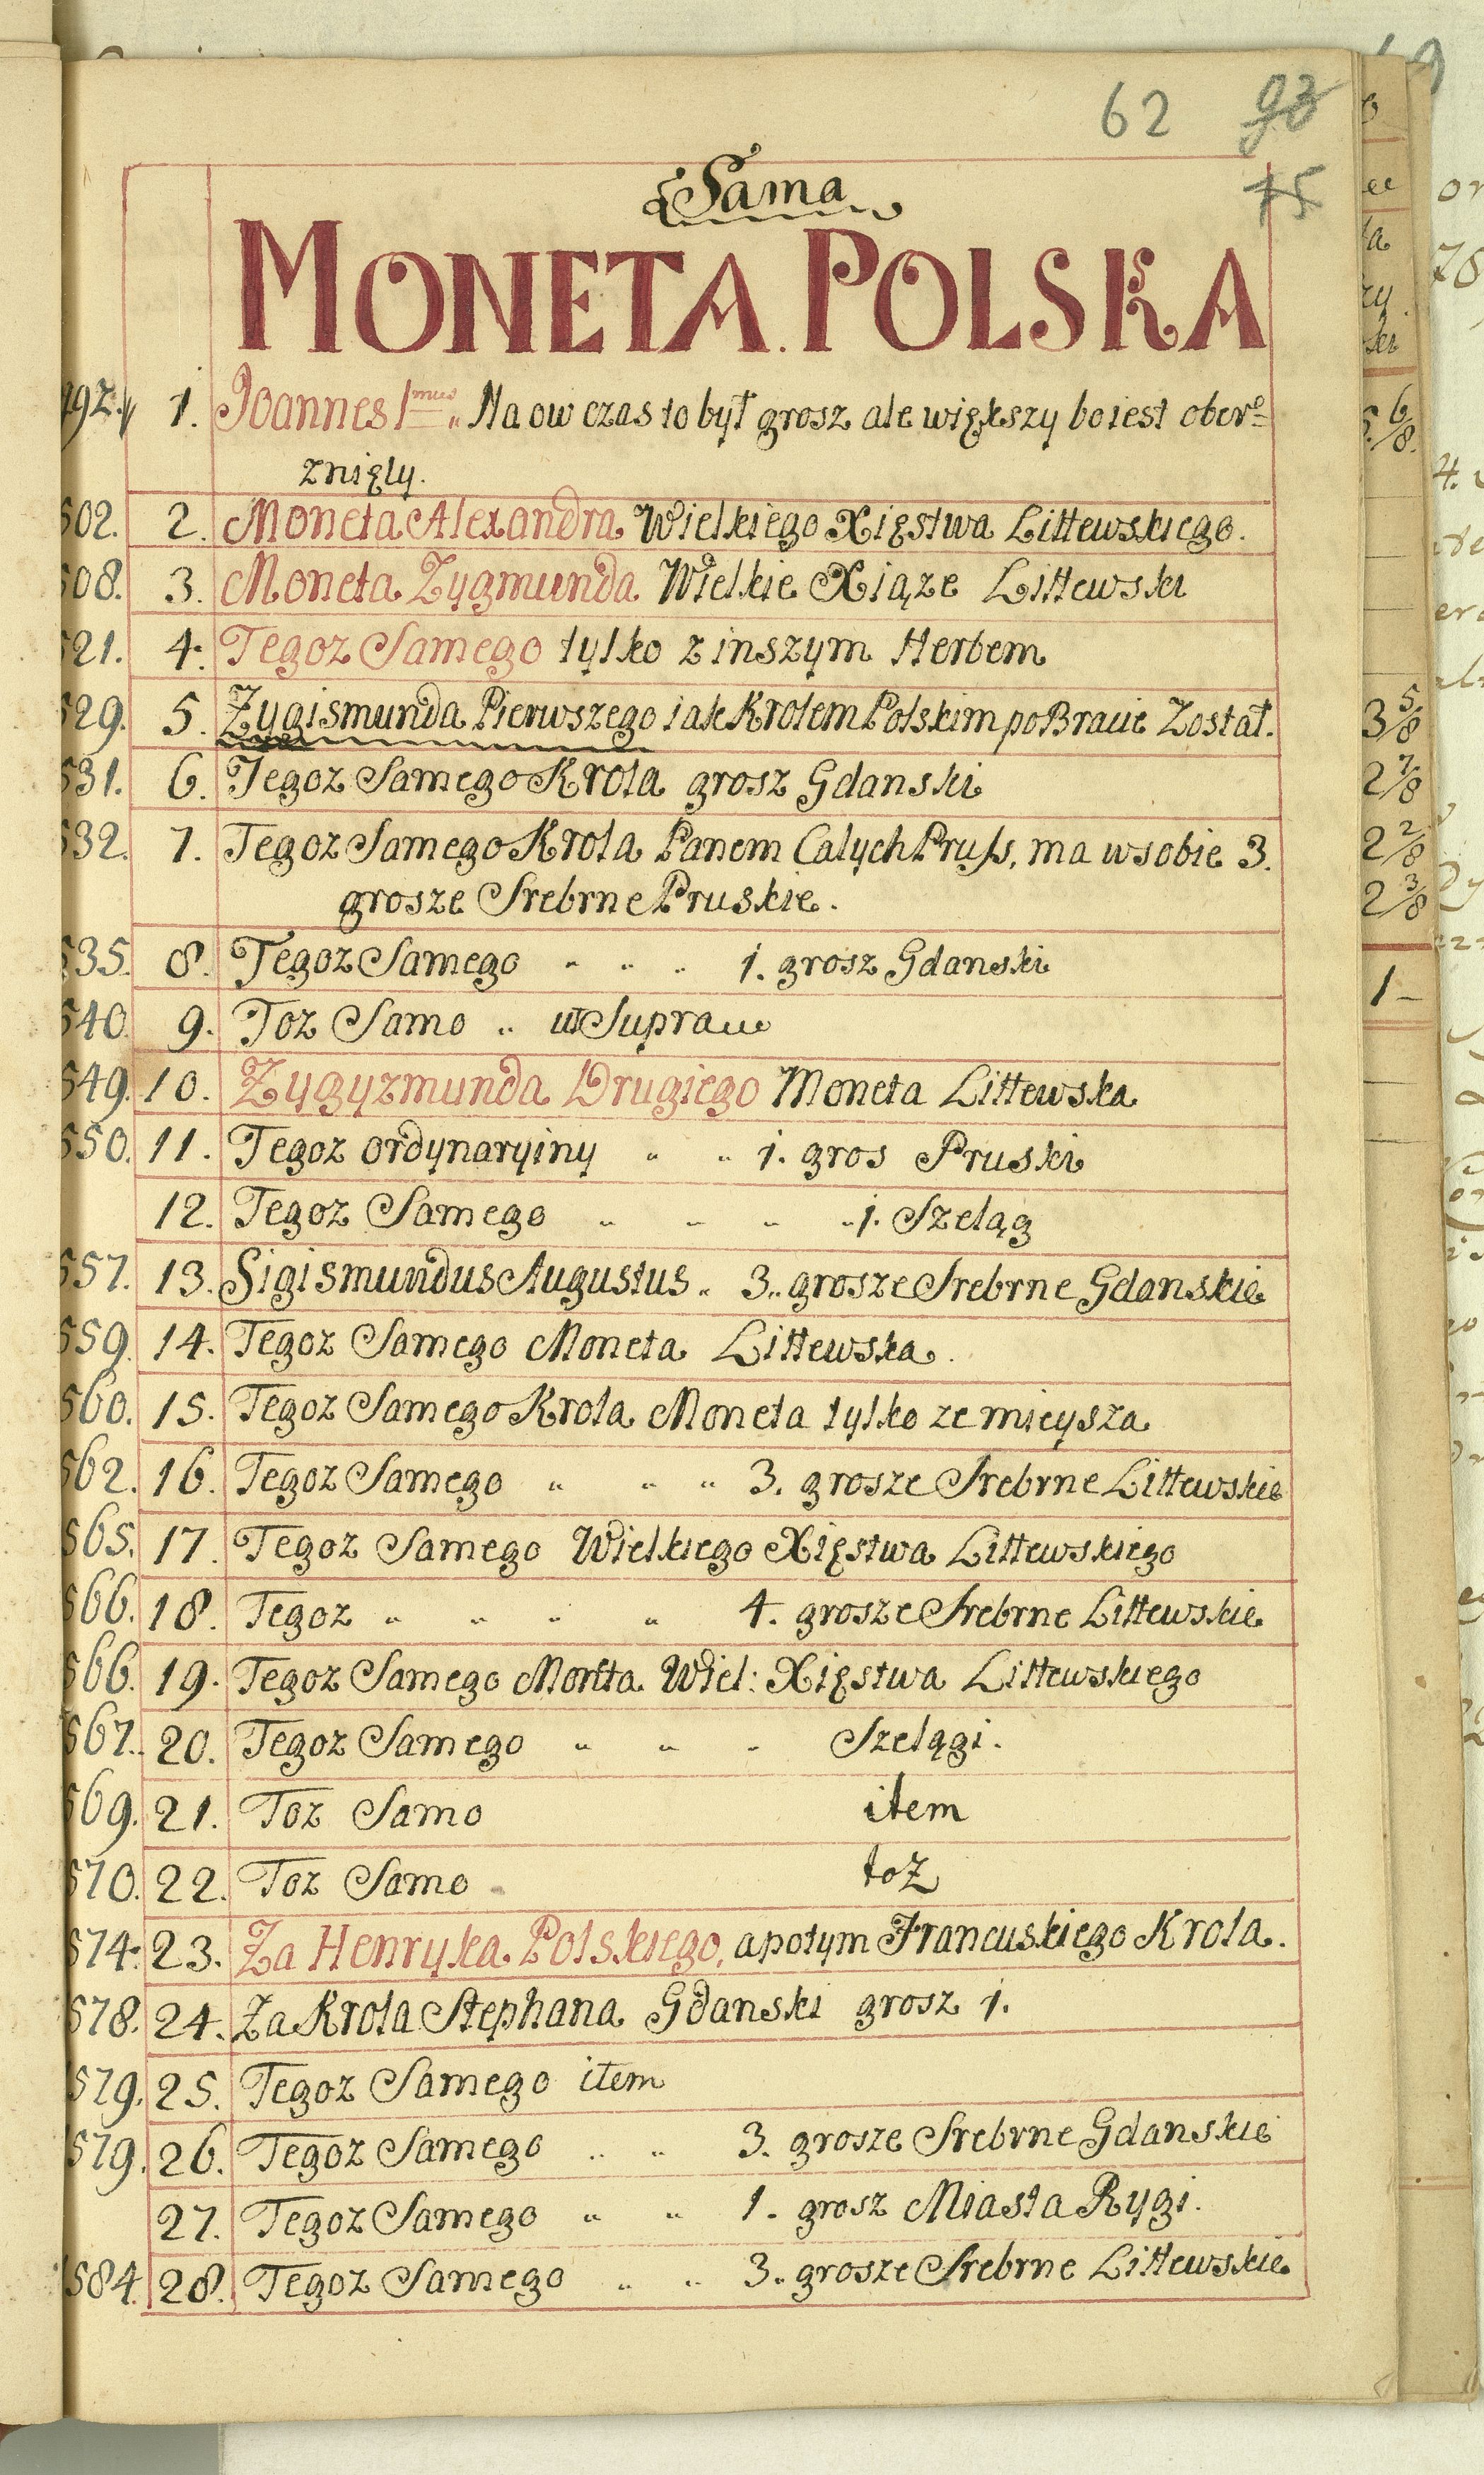 62 93
15
Sama
MONETA POLSKA
492. 1. Joannes 1mus „ Na ow czas to był grosz ale większy bo iest ober=
znięly.
502. 2. Moneta Alexandra Wielkiego Xięstwa Littewskiego.
508. 3. Moneta Zygmunda Wielkie Xiąze Littewski
521. 4. Tegoz Samego tylko z inszym Herbem
529. 5. Zygismunda Pierwszego iak Krolem Polskim po Bracie Został.
531. 6. Tegoz Samego Krola grosz Gdanski
532. 7. Tegoz Samego Krola Panem Calych Pruss, ma w sobie 3.
grosze Srebrne Pruskie.
535. 8. Tegoz Samego „ „ „ 1. grosz Gdanski
540. 9. Toz Samo „ ut Supra
549. 10. Zygyzmunda Drugiego Moneta Littewska
550. 11. Tegoz ordynaryiny „ „ 1. gros Pruski
12. Tegoz Samego „ „ „ „ 1. Szeląg
557. 13. Sigismundus Augustus „ 3. grosze Srebrne Gdanskie
559. 14. Tegoz Samego Moneta Littewska.
560. 15. Tegoz Samego Krola Moneta tylko ze mieysza
562. 16. Tegoz Samego „ „ „ 3. grosze Srebrne Littewskie
565. 17. Tegoz Samego Wielkiego Xięstwa Littewskiego
566. 18. Tegoz „ „ „ „ 4. grosze Srebrne Littewskie
566. 19. Tegoz Samego Moneta Wiel: Xięstwa Littewskiego
567. 20. Tegoz Samego „ „ „ Szelągi.
569. 21. Toz Samo item
570. 22. Toz Samo toz
574. 23. Za Henryka Polskiego, a potym Francuskiego Krola.
578. 24. Za Krola Stephana Gdanski grosz 1.
579. 25. Tegoz Samego item
579. 26. Tegoz Samego „ „ 3. grosze Srebrne Gdanskie
27. Tegoz Samego „ „ 1. grosz Miasta Rygi.
584. 28. Tegoz Samego „ „ 3. grosze Srebrne Littewskie
3 5/8
2 7/8
2 2/8
2 3/8
1 –